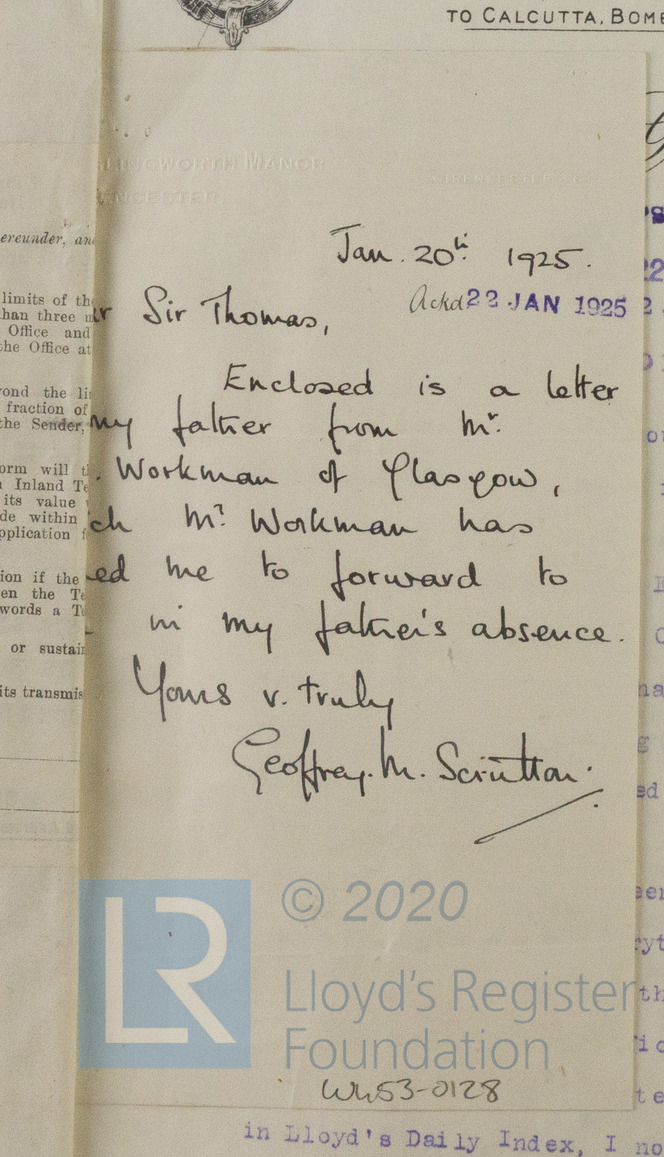 TO CALCUTTA, BOME
LINGWORTH MANOR
NCESTER
Jan. 20th 1925.
Ackd 22 JAN 1925
r Sir Thomas,
Enclosed is a letter
my father from Mr.
. Workman of Glasgow,
ch Mr. Workman has
ed me to forward to
in my father's absence.
Yours v. truly
Geoffrey. M. Scrutton.
© 2020
LR
Lloyd's Register
Foundation
W453-0128
ereunder, and
limits of th
than three m
Office and
the Office at
yond the li
fraction of
the Sender,
orm will t
n Inland Te
its value
de within
pplication f
ion if the
en the Te
words a Te
or sustain
its transmis
in Lloyd's Daily Index, I no